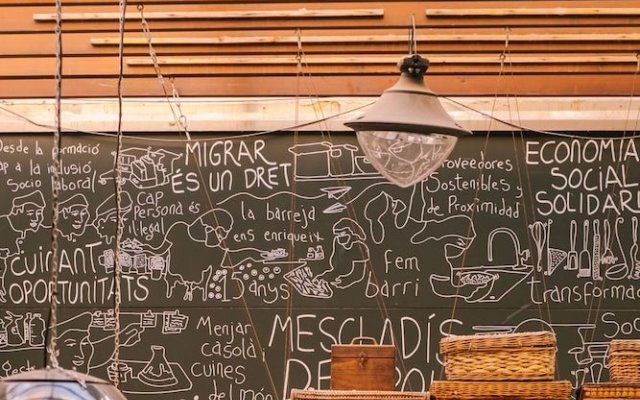 Desde la formació
cap a la inclusió
Socio laboral
MIGRAR
ÉS UN DRET
Cap
Persona és
il·legal
la barreja
ens enriqueix
Proveedores
Sostenibles y
de Proximidad
ECONOMIA
SOCIAL
SOLIDARS
CUINANT
OPORTUNITATS
anys
fem
barri
transforma
Menjar
casolà
cuines
del món
MESCLADÍS
DE